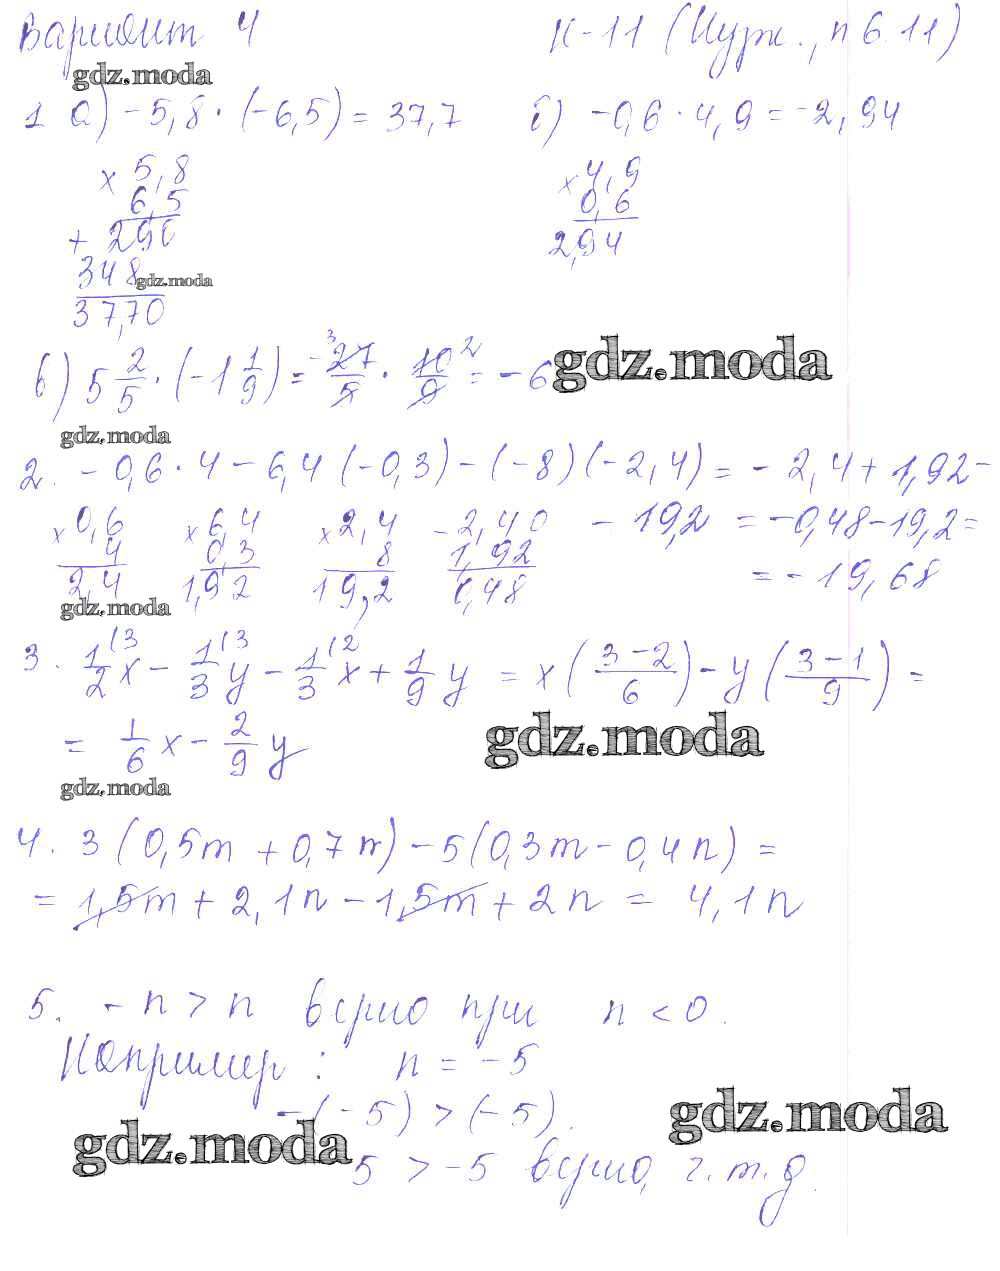 Вариант 4 К-11 (Нурк., п 6.11)
gdz.moda
1 а) -5,8 · (-6,5) = 37,7 б) -0,6 · 4,9 = -2,94
× 5,8 × 4,9
6,5 0,6
+ 290 2,94
348 gdz.moda
37,70
в) 5 2/5 · (-1 1/9) = - 27/5 · 10/9 = -6 gdz.moda
3 2
gdz.moda
2. -0,6 · 4 - 6,4 (-0,3) - (-8)(-2,4) = -2,4 + 1,92 -
× 0,6 × 6,4 × 2,4 - 2,40 - 19,2 = -0,48 - 19,2 =
4 0,3 8 1,92
2,4 1,92 19,2 0,48 = -19,68
gdz.moda
3. 1/2 (3 x - 1/3 (3 y - 1/3 (2 x + 1/9 y = x ( 3-2 / 6 ) - y ( 3-1 / 9 ) =
= 1/6 x - 2/9 y gdz.moda
gdz.moda
4. 3 (0,5m + 0,7n) - 5 (0,3m - 0,4n) =
= 1,5m + 2,1n - 1,5m + 2n = 4,1n
5. -n > n верно при n < 0.
Например: n = -5
-(-5) > (-5). gdz.moda
gdz.moda
5 > -5 верно, ч.т.д.